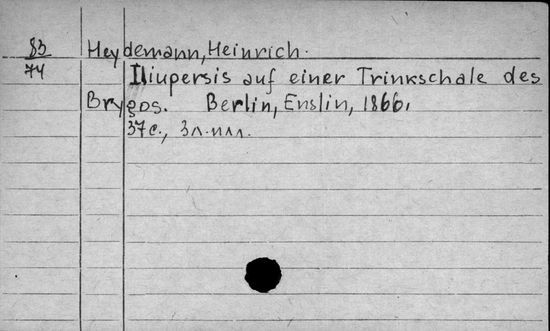 83 Heydemann, Heinrich.
74 Iliupersis auf einer Trinkschale des
Brygos. Berlin, Enslin, 1866.
37с., 3л.илл.